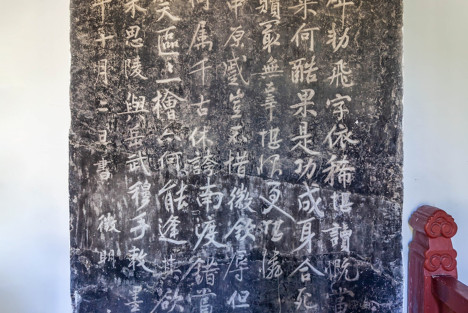 碑勑飛字依稀堪讀慨當
來何酷果是功成身合死
贖最無辜堪恨更堪憐
中原蹙豈不惜徽欽辱但
何属千古休誇南渡錯當
笑區區一檜亦何能逢其欲
宋思陵與岳武穆手敕墨
年十月二日書 徵明